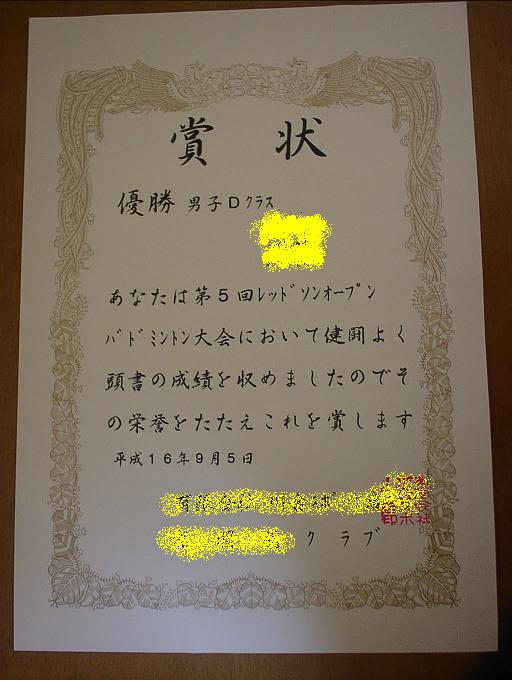 賞状
優勝 男子Dクラス
あなたは第5回レッドソンオープン
バドミントン大会において健闘よく
頭書の成績を収めましたのでそ
の栄誉をたたえこれを賞します
平成16年9月5日
クラブ